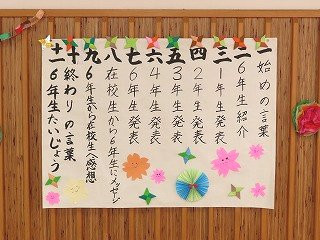 一 始めの言葉
二 6年生紹介
三 1年生発表
四 2年生発表
五 3年生発表
六 4年生発表
七 6年生発表
八 在校生から6年生にメッセージ
九 6年生から在校生へ感想
十 終わりの言葉
十一 6年生たいじょう